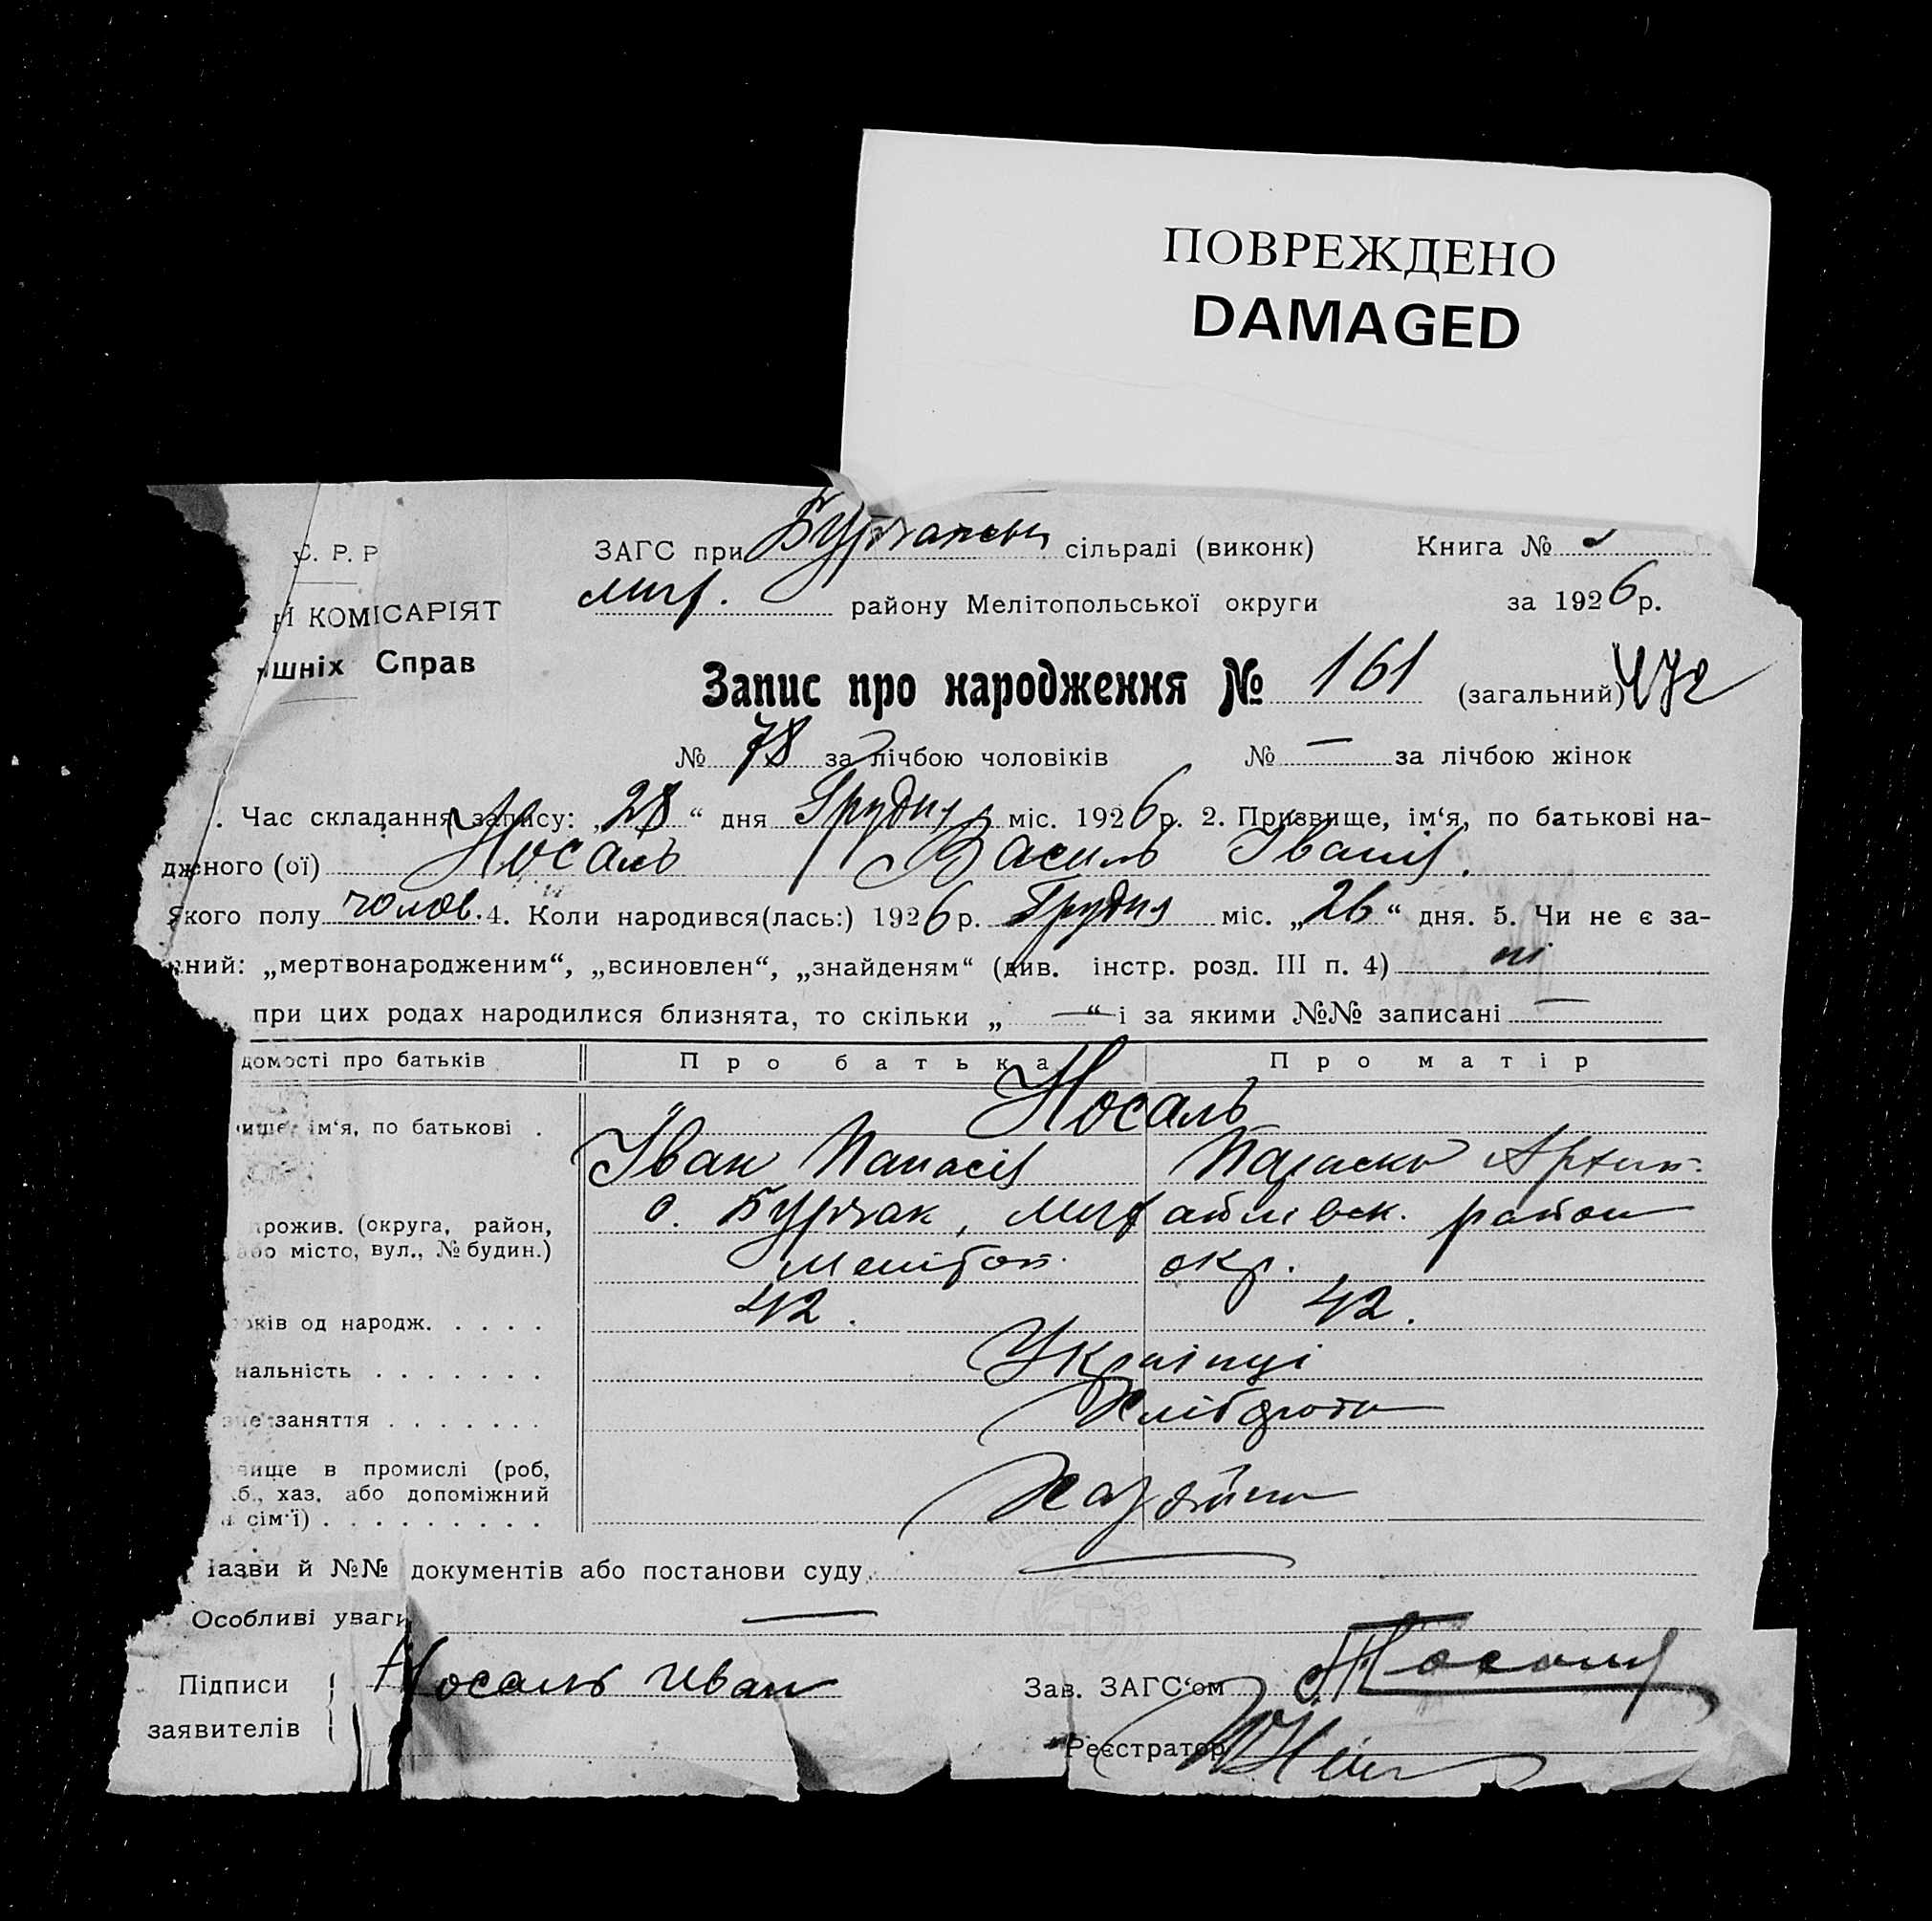 ПОВРЕЖДЕНО
DAMAGED
С. Р. Р
Й КОМІСАРІЯТ
шніх Справ
ЗАГС при сільраді (виконк) Книга №
району Мелітопольської округи за 1926 р.
Запис про народження № 161 (загальний)
№ 78 за лічбою чоловіків № — за лічбою жінок
. Час складання запису: „28“ дня Грудня міс. 1926 р. 2. Призвище, ім‘я, по батькові на-
дженого (ої) Носаль Василь Іванів.
Якого полу чолов. 4. Коли народився(лась:) 1926 р. Грудня міс. „26“ дня. 5. Чи не є за-
ний: „мертвонародженим“, „всиновлен“, „знайденям“ (див. інстр. розд. III п. 4) ні
при цих родах народилися близнята, то скільки „—“ і за якими №№ записані —
домості про батьків Про батька Про матір
Носаль
ище, ім‘я, по батькові . Іван Панасів
прожив. (округа, район, с. Бурчак, район
або місто, вул., № будин.) Мелітоп. окр.
оків од народж. . . . . 42. 42.
нальність . . . . . . . Українці
не заняття . . . . . . . Хлібороби
вище в промислі (роб,
б., хаз, або допоміжний
сім‘ї) . . . . . . . . . Хазяїни
Назви й №№ документів або постанови суду —
Особливі уваги —
Підписи заявителів Носаль Иван
Зав. ЗАГС‘ом
Реєстратор